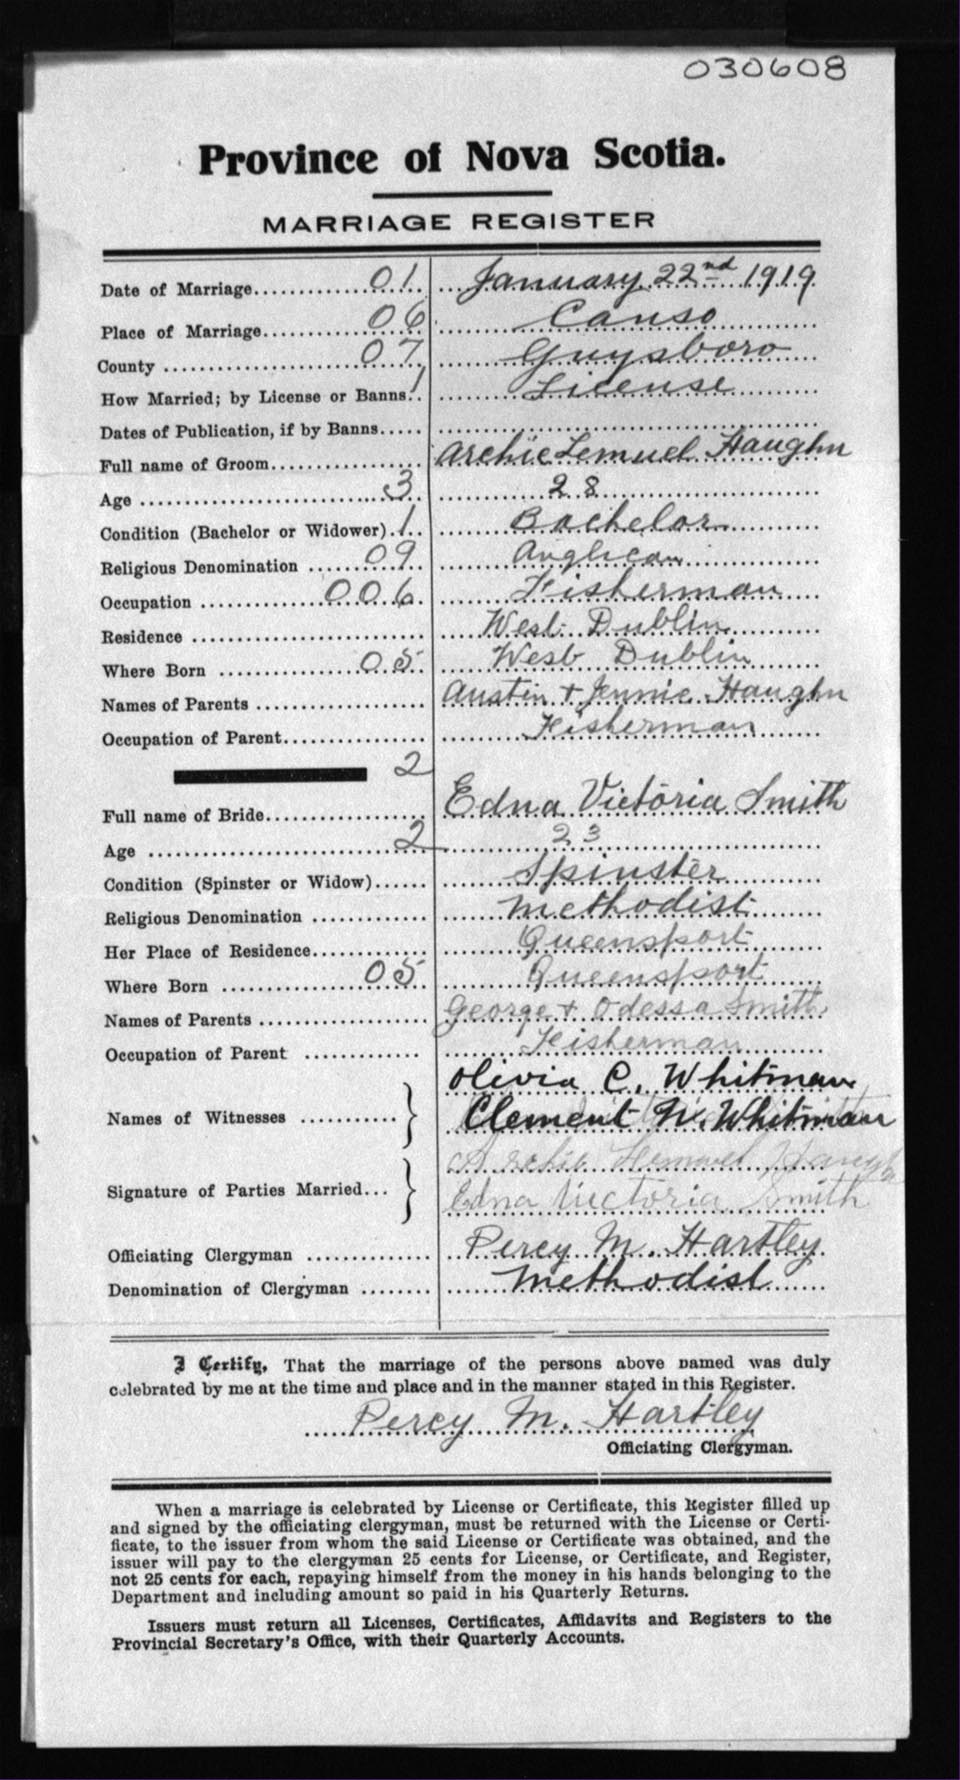 030608
Province of Nova Scotia.
MARRIAGE REGISTER
Date of Marriage 01 January 22nd 1919
Place of Marriage 06 Canso
County 07 Guysboro
How Married; by License or Banns 1 License
Dates of Publication, if by Banns
Full name of Groom Archie Lemuel Haughn
Age 3 28
Condition (Bachelor or Widower) 1 Bachelor
Religious Denomination 09 Anglican
Occupation 006 Fisherman
Residence West Dublin
Where Born 05 West Dublin
Names of Parents Austin + Jennie Haughn
Occupation of Parent Fisherman
2
Full name of Bride Edna Victoria Smith
Age 2 23
Condition (Spinster or Widow) Spinster
Religious Denomination Methodist
Her Place of Residence Queensport
Where Born 05 Queensport
Names of Parents George + Odessa Smith
Occupation of Parent Fisherman
Olivia C. Whitman
Names of Witnesses Clement W. Whitman
Archie Lemuel Haughn
Signature of Parties Married... Edna Victoria Smith
Officiating Clergyman Percy M. Hartley
Denomination of Clergyman Methodist
I Certify, That the marriage of the persons above named was duly
celebrated by me at the time and place and in the manner stated in this Register.
Percy M. Hartley
Officiating Clergyman.
When a marriage is celebrated by License or Certificate, this Register filled up
and signed by the officiating clergyman, must be returned with the License or Certi-
ficate, to the issuer from whom the said License or Certificate was obtained, and the
issuer will pay to the clergyman 25 cents for License, or Certificate, and Register,
not 25 cents for each, repaying himself from the money in his hands belonging to the
Department and including amount so paid in his Quarterly Returns.
Issuers must return all Licenses, Certificates, Affidavits and Registers to the
Provincial Secretary's Office, with their Quarterly Accounts.